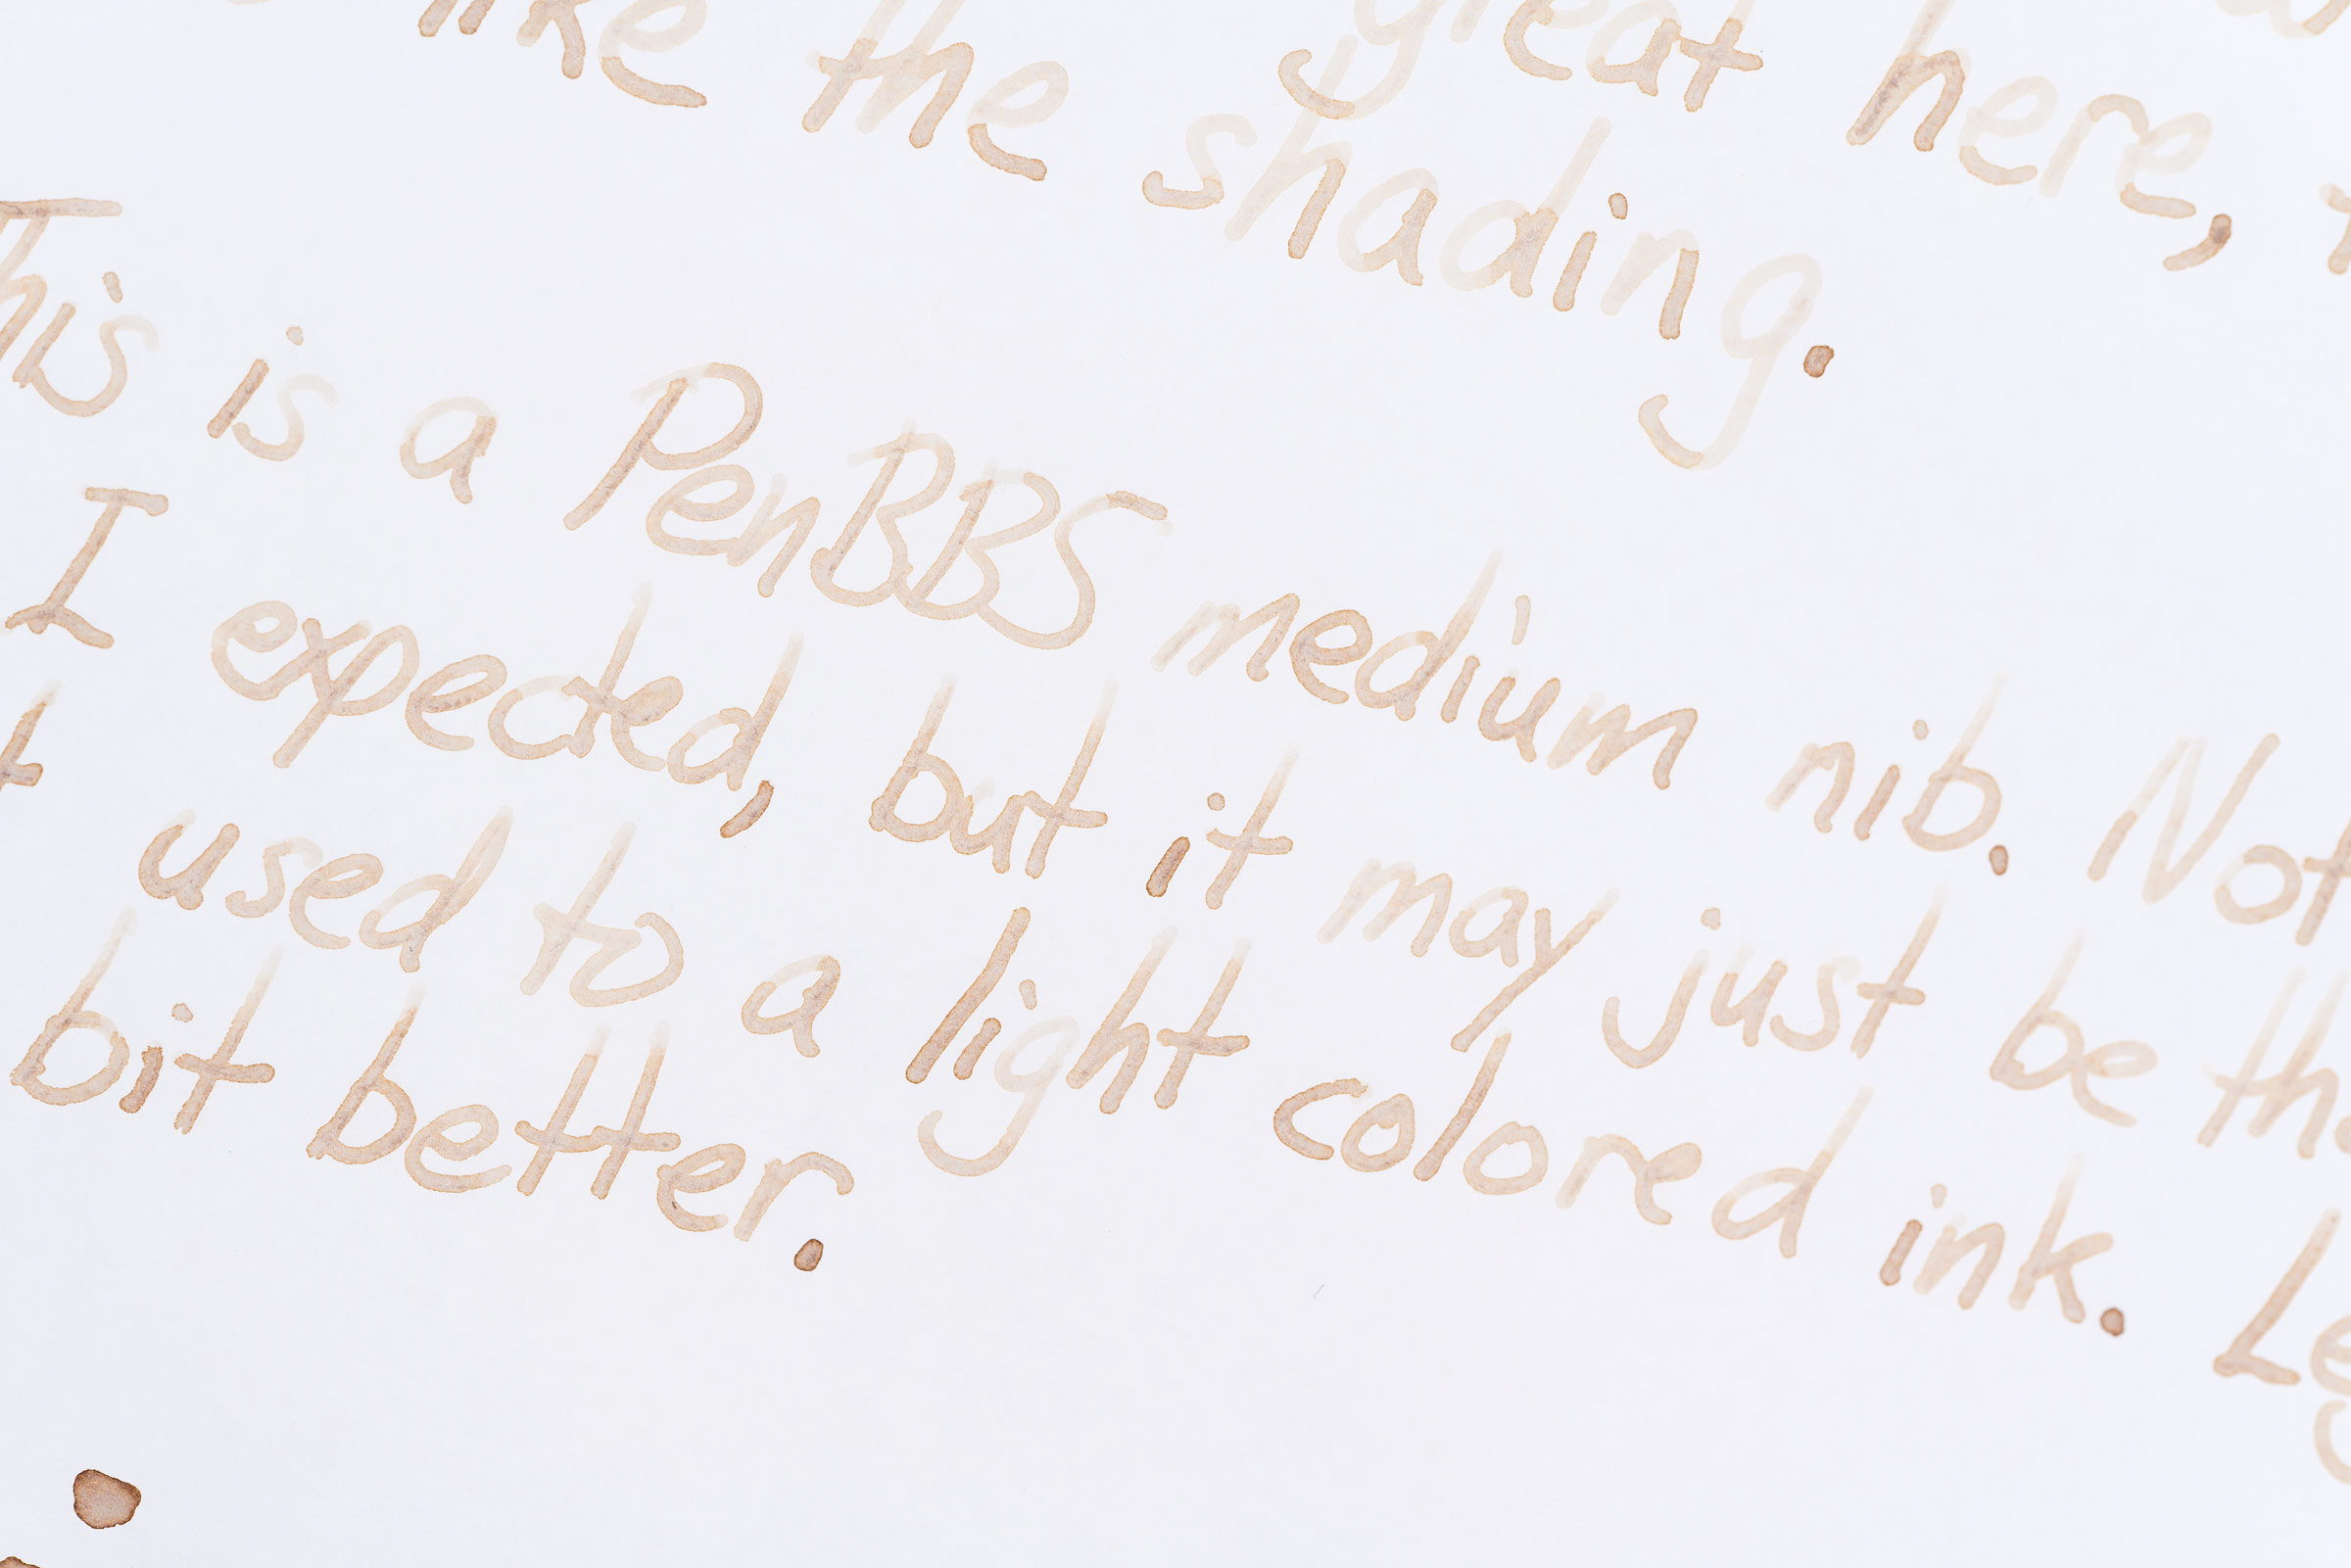 great here,
like the shading.
This is a PenBBS medium nib. Not
I expected, but it may just be
used to a light colored ink.
bit better.